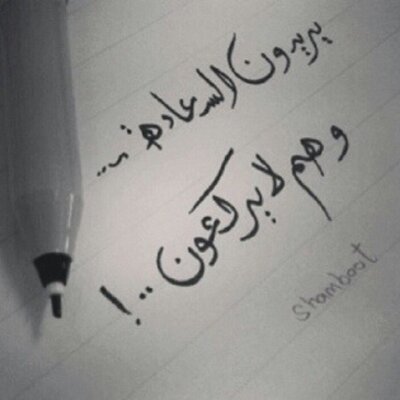 يريدون السعادة ..
وهم لا يركعون ..!
shamboot